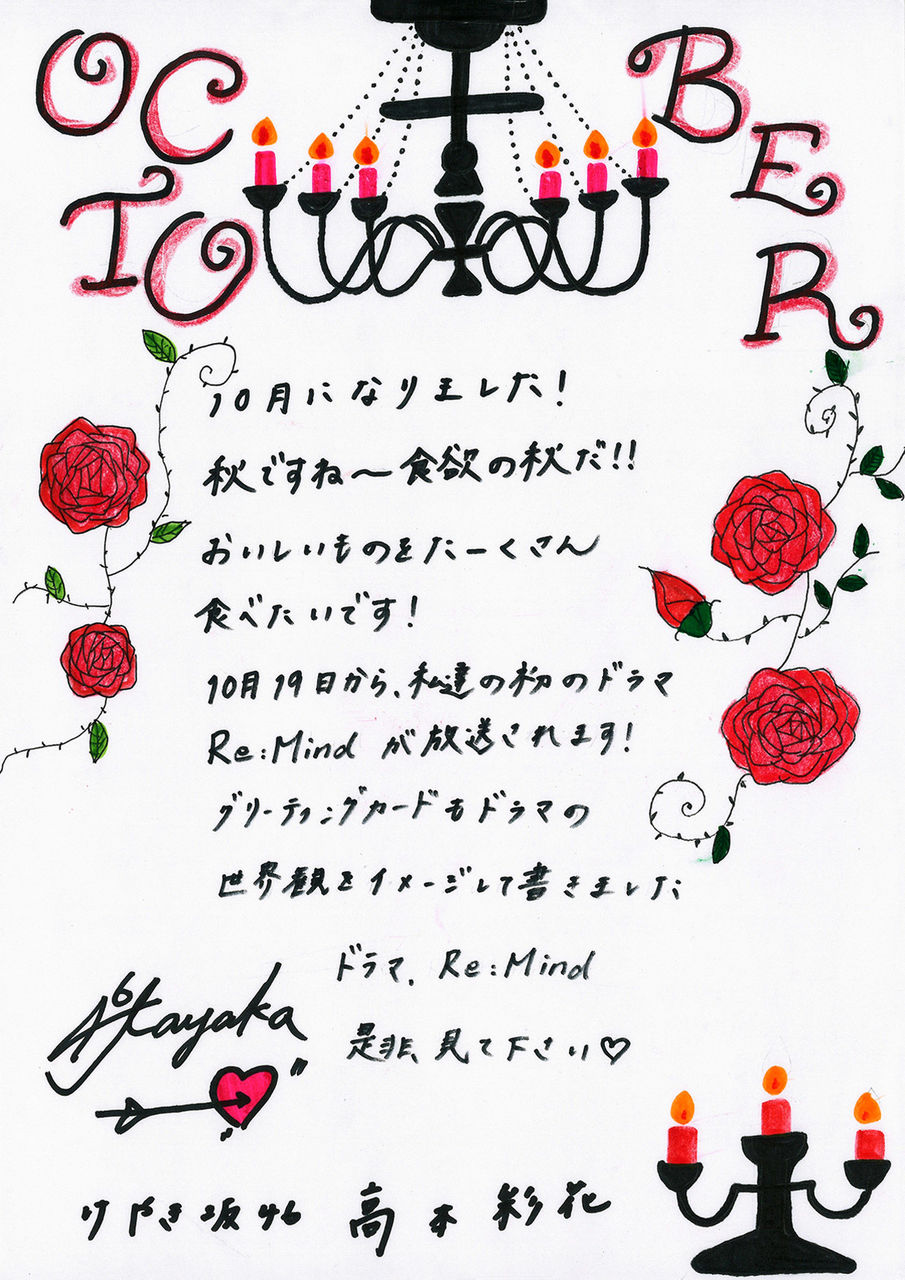 OCTOBER
10月になりました!
秋ですね〜食欲の秋だ!!
おいしいものをたーくさん
食べたいです!
10月19日から、私達の初のドラマ
Re:Mindが放送されます!
グリーティングカードもドラマの
世界観をイメージして書きました
ドラマ、Re:Mind
是非、見て下さい♡
けやき坂46 高本彩花